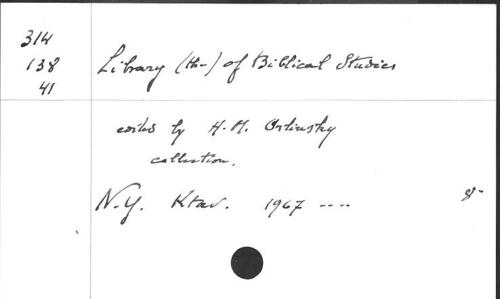 314
138
41
Library (the) of Biblical Studies
edited by H. M. Orlinsky
collection.
N.Y. Ktav. 1967 ---- 8°